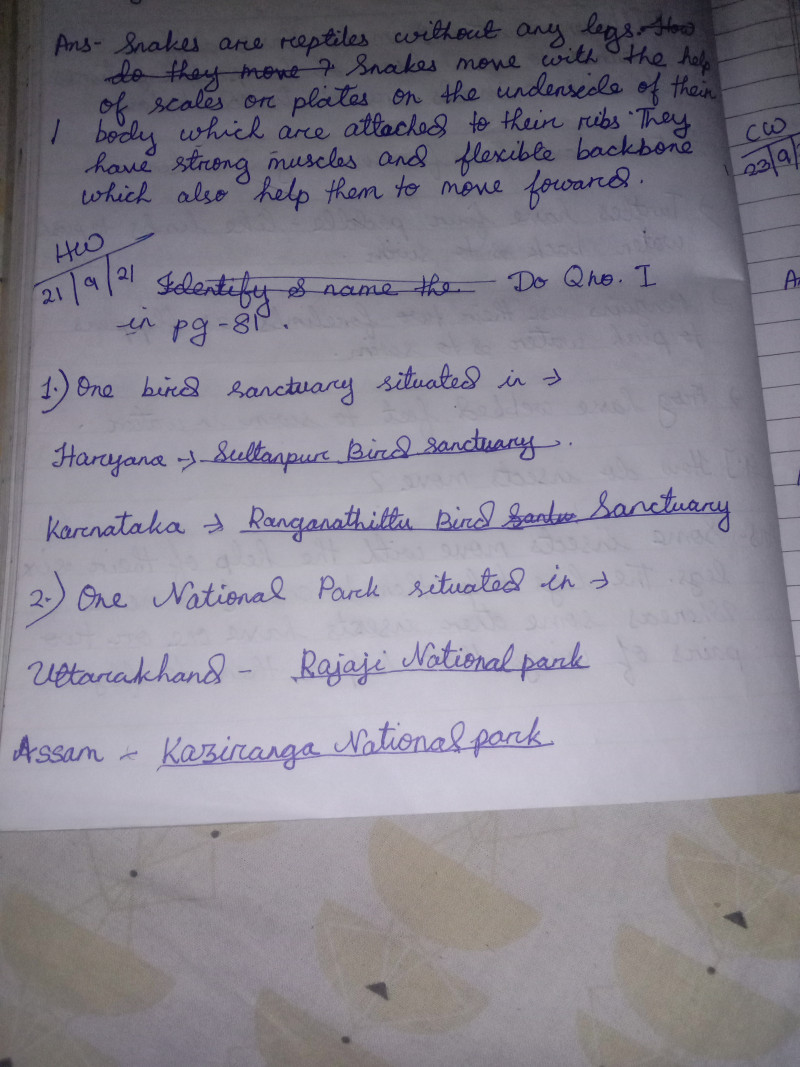 Ans- Snakes are reptiles without any legs. How
do they move? Snakes move with the help
of scales or plates on the underside of their
body which are attached to their ribs. They
have strong muscles and flexible backbone
which also help them to move foward.
HW
21|9|21
Identify & name the Do Qno. I
in pg-81.
1.) One bird sanctuary situated in →
Haryana → Sultanpur Bird Sanctuary.
Karnataka → Ranganathittu Bird Santu Sanctuary
2.) One National Park situated in →
Uttarakhand - Rajaji National park
Assam - Kaziranga National park
CW
23|9|